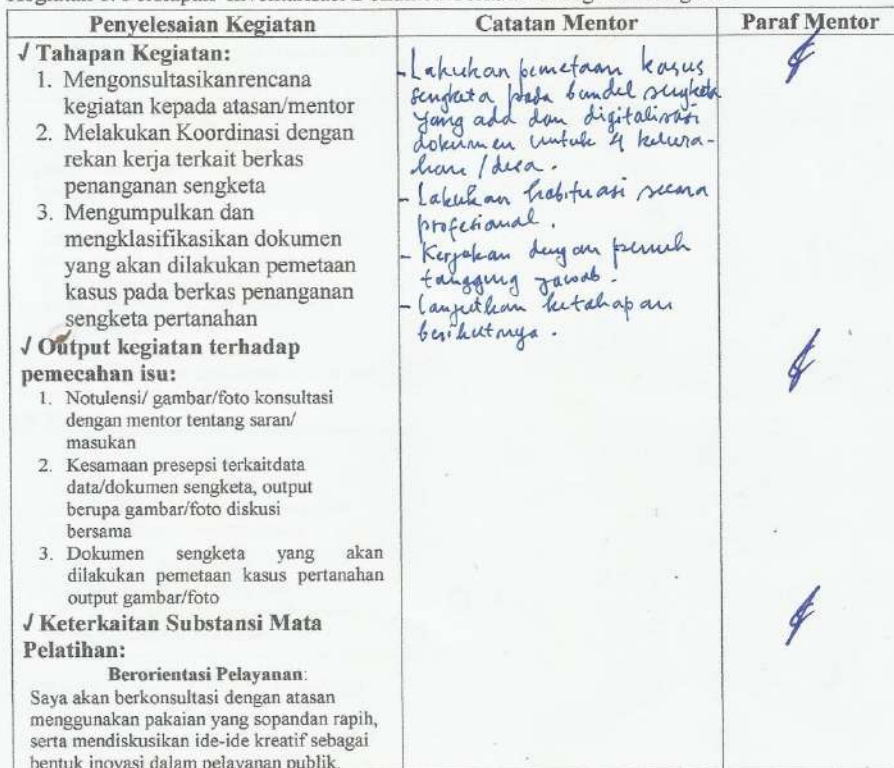 Penyelesaian Kegiatan
Catatan Mentor
Paraf Mentor
√ Tahapan Kegiatan:
1. Mengonsultasikanrencana
kegiatan kepada atasan/mentor
2. Melakukan Koordinasi dengan
rekan kerja terkait berkas
penanganan sengketa
3. Mengumpulkan dan
mengklasifikasikan dokumen
yang akan dilakukan pemetaan
kasus pada berkas penanganan
sengketa pertanahan
√ Output kegiatan terhadap
pemecahan isu:
1. Notulensi/ gambar/foto konsultasi
dengan mentor tentang saran/
masukan
2. Kesamaan presepsi terkaitdata
data/dokumen sengketa, output
berupa gambar/foto diskusi
bersama
3. Dokumen sengketa yang akan
dilakukan pemetaan kasus pertanahan
output gambar/foto
√ Keterkaitan Substansi Mata
Pelatihan:
Berorientasi Pelayanan:
Saya akan berkonsultasi dengan atasan
menggunakan pakaian yang sopandan rapih,
serta mendiskusikan ide-ide kreatif sebagai
bentuk inovasi dalam pelayanan publik.
- Lakukan pemetaan kasus
sengketa pada bundel sengketa
yang ada dan digitalisasi
dokumen untuk 4 kelura-
han / desa.
- Lakukan habituasi secara
profesional.
- Kerjakan dengan penuh
tanggung jawab.
- Lanjutkan ketahapan
berikutnya.